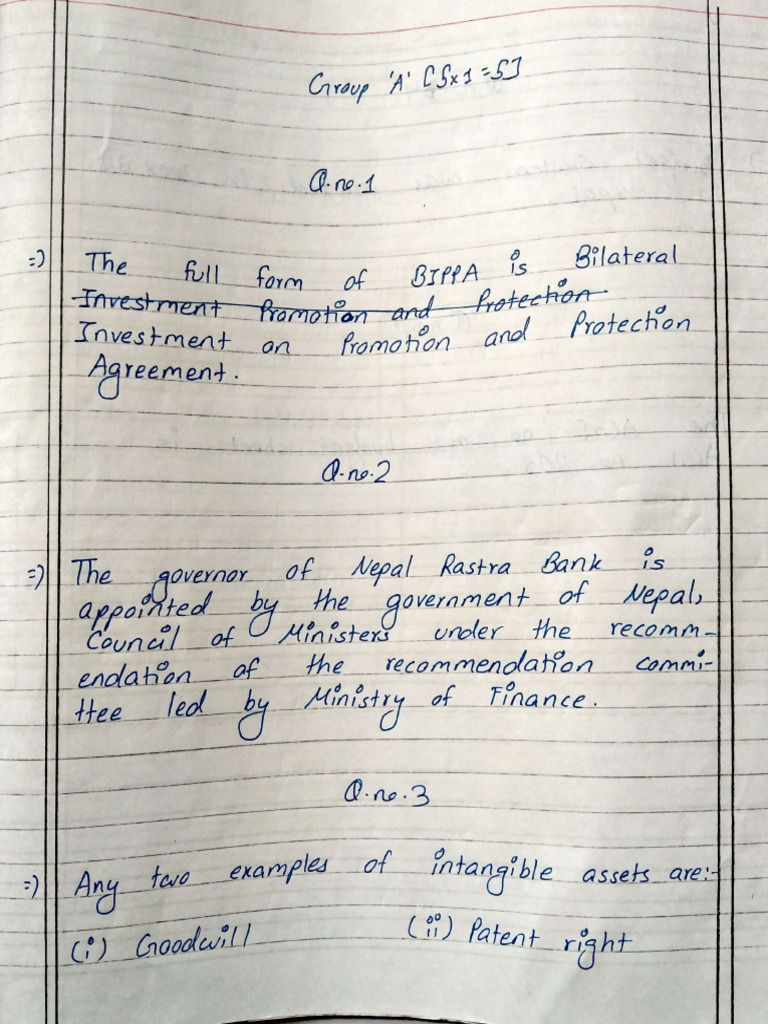 Group 'A' [5x1=5]
Q.no.1
=) The full form of BIPPA is Bilateral
Investment Promotion and Protection
Investment on Promotion and Protection
Agreement.
Q.no.2
=) The governor of Nepal Rastra Bank is
appointed by the government of Nepal,
Council of Ministers under the recomm-
endation of the recommendation commi-
ttee led by Ministry of Finance.
Q.no.3
=) Any two examples of intangible assets are:-
(i) Goodwill (ii) Patent right